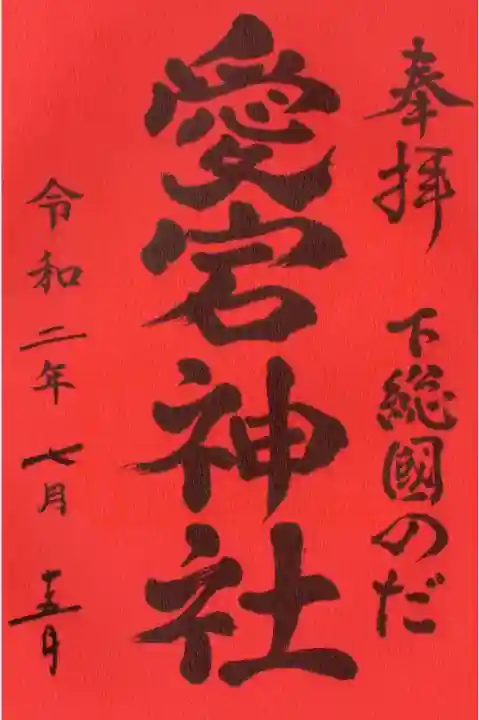 奉拝 下総國のだ
愛宕神社
令和二年七月十五日